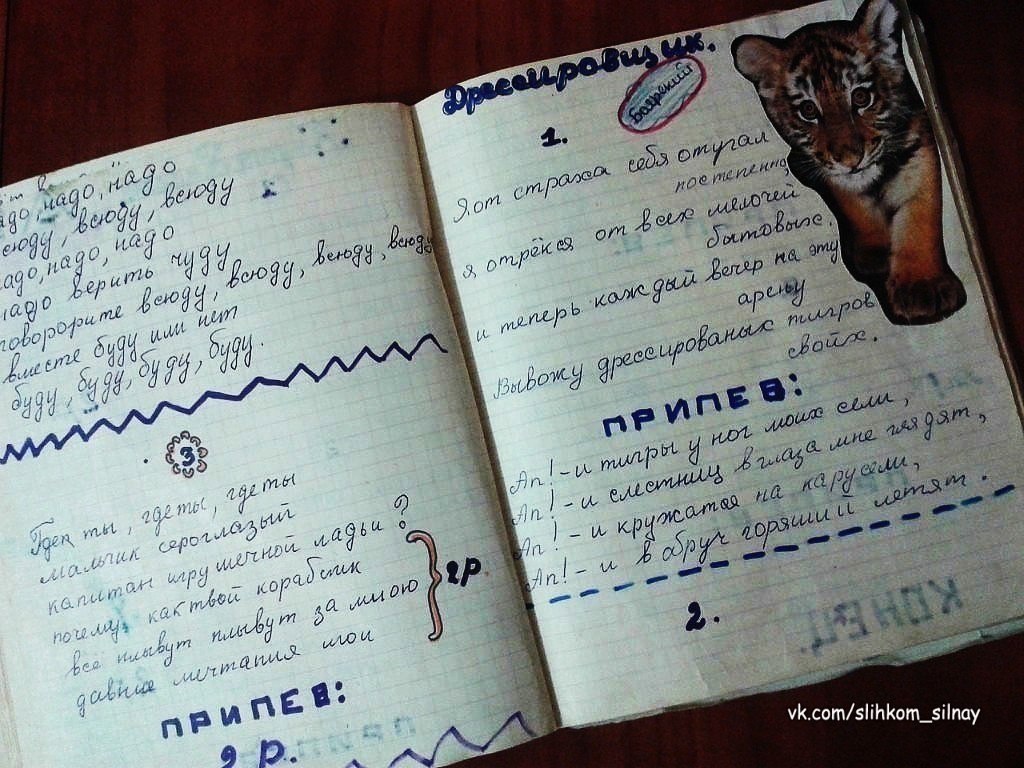 надо, надо, надо
всюду, всюду, всюду
надо, надо, надо
надо верить чуду
говорорите всюду, всюду, всюду, всюду
вместе буду или нет
буду, буду, буду, буду.
3
Где ты, где ты, где ты
мальчик сероглазый
капитан игрушечной ладьи?
почему, как твой кораблик
все плывут плывут за мною
давние мечтания мои
2р.
ПРИПЕВ:
2 р.
Дрессировщик.
Боярский
1.
Я от страха себя отучал
постепенно,
я отрёкся от всех мелочей
бытовых.
и теперь каждый вечер на эту
арену
Вывожу дрессированых тигров
свойх.
ПРИПЕВ:
Ап! - и тигры у ног моих сели,
Ап! - и слестниц в глаза мне глядят,
Ап! - и кружатся на карусели,
Ап! - и в обруч горящий летят.
2.
КОНЕЦ
vk.com/slihkom_silnay